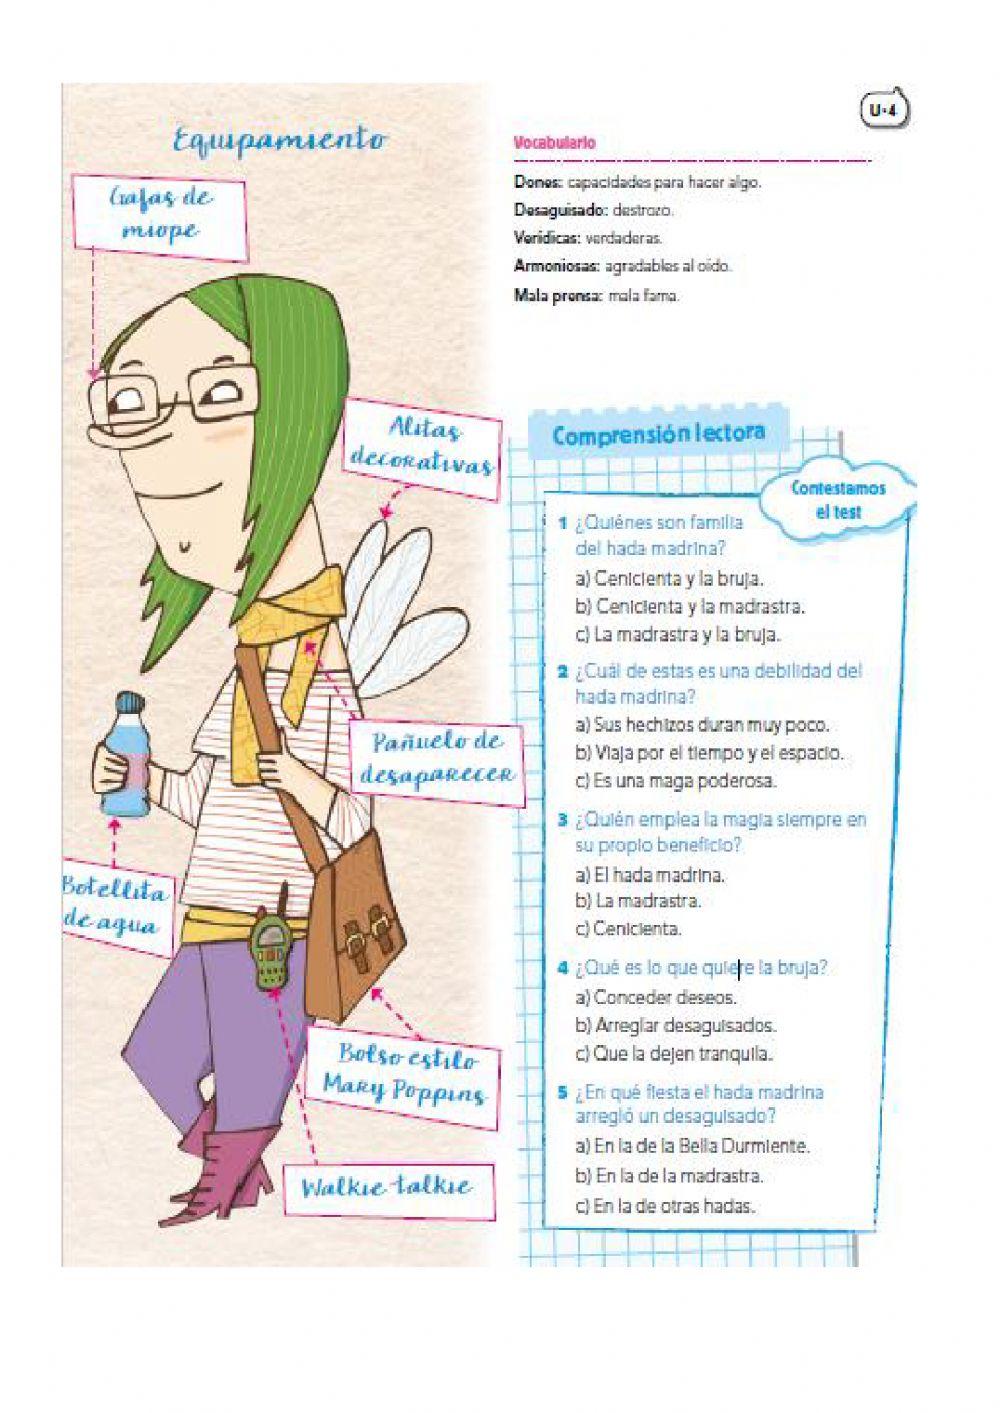 U·4
Equipamiento
Gafas de
miope
Alitas
decorativas
Pañuelo de
desaparecer
Botellita
de agua
Bolso estilo
Mary Poppins
Walkie-talkie
Vocabulario
Dones: capacidades para hacer algo.
Desaguisado: destrozo.
Verídicas: verdaderas.
Armoniosas: agradables al oído.
Mala prensa: mala fama.
Comprensión lectora
Contestamos
el test
1 ¿Quiénes son familia
del hada madrina?
a) Cenicienta y la bruja.
b) Cenicienta y la madrastra.
c) La madrastra y la bruja.
2 ¿Cuál de estas es una debilidad del
hada madrina?
a) Sus hechizos duran muy poco.
b) Viaja por el tiempo y el espacio.
c) Es una maga poderosa.
3 ¿Quién emplea la magia siempre en
su propio beneficio?
a) El hada madrina.
b) La madrastra.
c) Cenicienta.
4 ¿Qué es lo que quiere la bruja?
a) Conceder deseos.
b) Arreglar desaguisados.
c) Que la dejen tranquila.
5 ¿En qué fiesta el hada madrina
arregló un desaguisado?
a) En la de la Bella Durmiente.
b) En la de la madrastra.
c) En la de otras hadas.